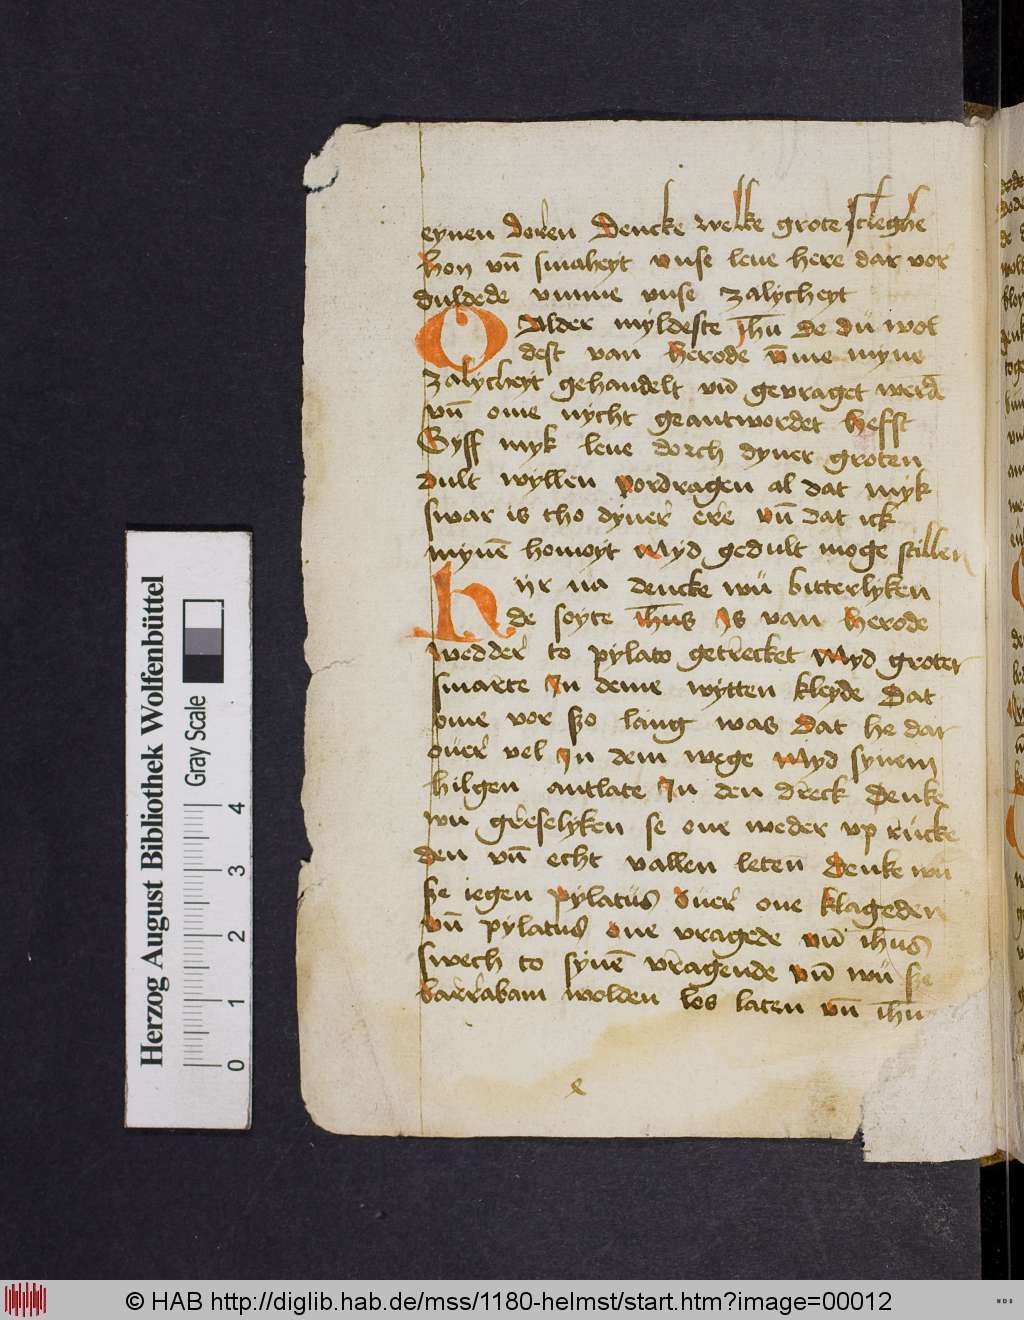 eynen doren Dencke welke grote sleghe
hon vn̄ smaheyt vnse leue here dar vor
duldede vmme vnse zalycheyt
O Alder myldeste ihū de dů wol
dest van herode v̄me myne
zalycheyt gehandelt vn̄ gevraget werdē
vn̄ ome nycht geantwordet hefst
Gyff myk leue dorch dyner groten
dult wyllen vordragen al dat myk
swar is tho dyner ere vn̄ dat ick
mynē homoyt Myd gedult moge stillen
Hyr na dencke wů bitterlyken
de soyte ihūs Is van herode
wedder to pylato getrecket Myd groter
smarte In deme wytten kleyde Dat
ome vor szo lang was Dat he dar
ouer vel In dem wege Myd synem
hilgen antlate In den dreck Denke
wů greselyken se one weder vp růcke
den vn̄ echt vallen leten Denke wů
sze iegen pylatůs ůuer one klageden
vn̄ pylatus one vragede vn̄ ihūs
swech to synē vragende vn̄ wů sze
barrabam wolden los laten vn̄ ihū
Herzog August Bibliothek Wolfenbüttel
Gray Scale
0 1 2 3 4
© HAB http://diglib.hab.de/mss/1180-helmst/start.htm?image=00012